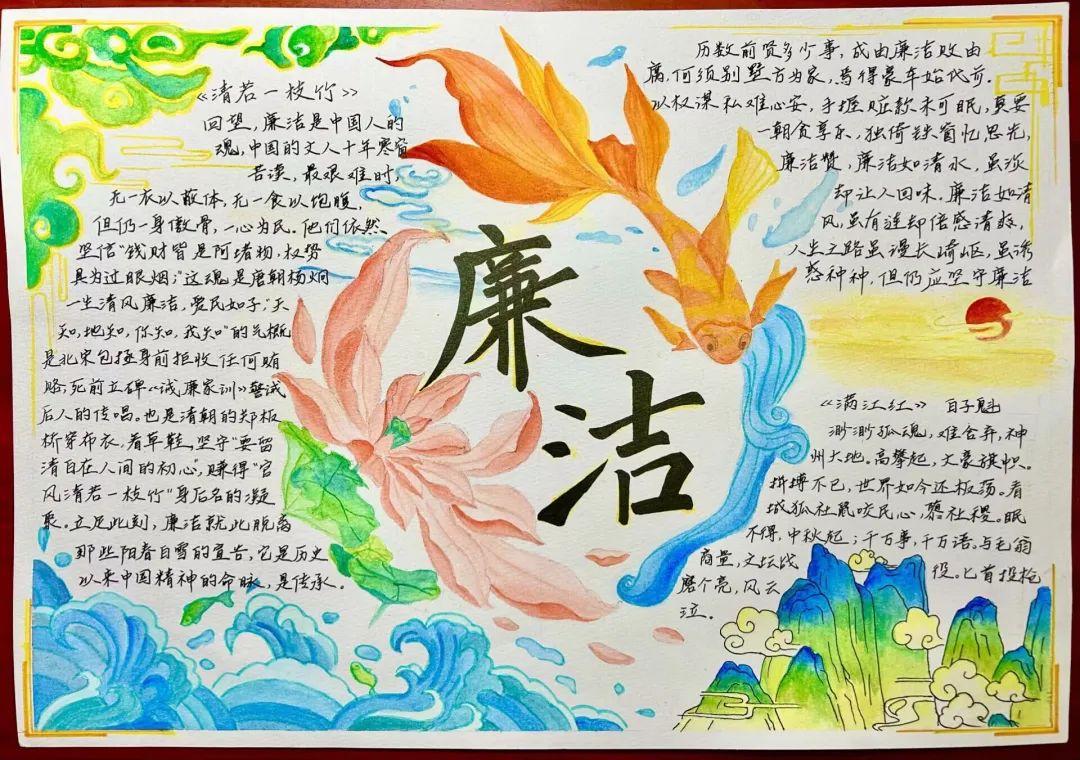 《清若一枝竹》
回望，廉洁是中国人的
魂，中国的文人十年寒窗
苦读，最艰难时，
无一衣以蔽体，无一食以饱腹，
但仍一身傲骨，一心为民。他们依然
坚信“钱财皆是阿堵物，权势
具为过眼烟；”这魂是唐朝杨炯
一生清风廉洁，爱民如子；“天
知，地知，你知，我知”的气概
是北宋包拯身前拒收任何贿
赂，死前立碑《诫廉家训》警诫
后人的传唱。也是清朝的郑板
桥穿布衣，着草鞋，坚守“要留
清白在人间的初心，赚得“官
风清若一枝竹”身后名的凝
聚。立足此刻，廉洁就此脱离
那些阳春白雪的宣告，它是历史
以来中国精神的命脉，是传承。
廉洁
历数前贤多少事，成由廉洁败由
腐，何须别墅方为家，焉得豪车始代前。
以权谋私难心安，手握赃款未可眠，莫要
一朝贪享乐，独倚铁窗忆思光，
廉洁赞，廉洁如清水，虽淡
却让人回味，廉洁如清
风，虽有涟却倍感清爽，
人生之路虽漫长崎岖，虽诱
惑种种，但仍应坚守廉洁
《满江红》 自子魁
渺渺孤魂，难舍弃，神
州大地。高攀起，文豪旗帜。
拼搏不已，世界如今还板荡。看
城狐社鼠咬民心，隳社稷。眠
不得，中秋起；千万事，千万语。与毛翁
商量，文坛战役。匕首投枪
磨个亮，风云
泣。